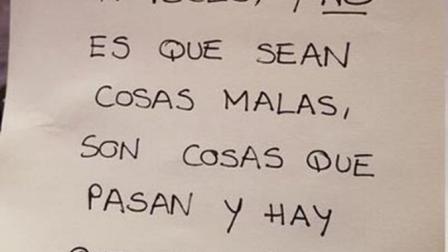 Y NO
ES QUE SEAN
COSAS MALAS,
SON COSAS QUE
PASAN Y HAY